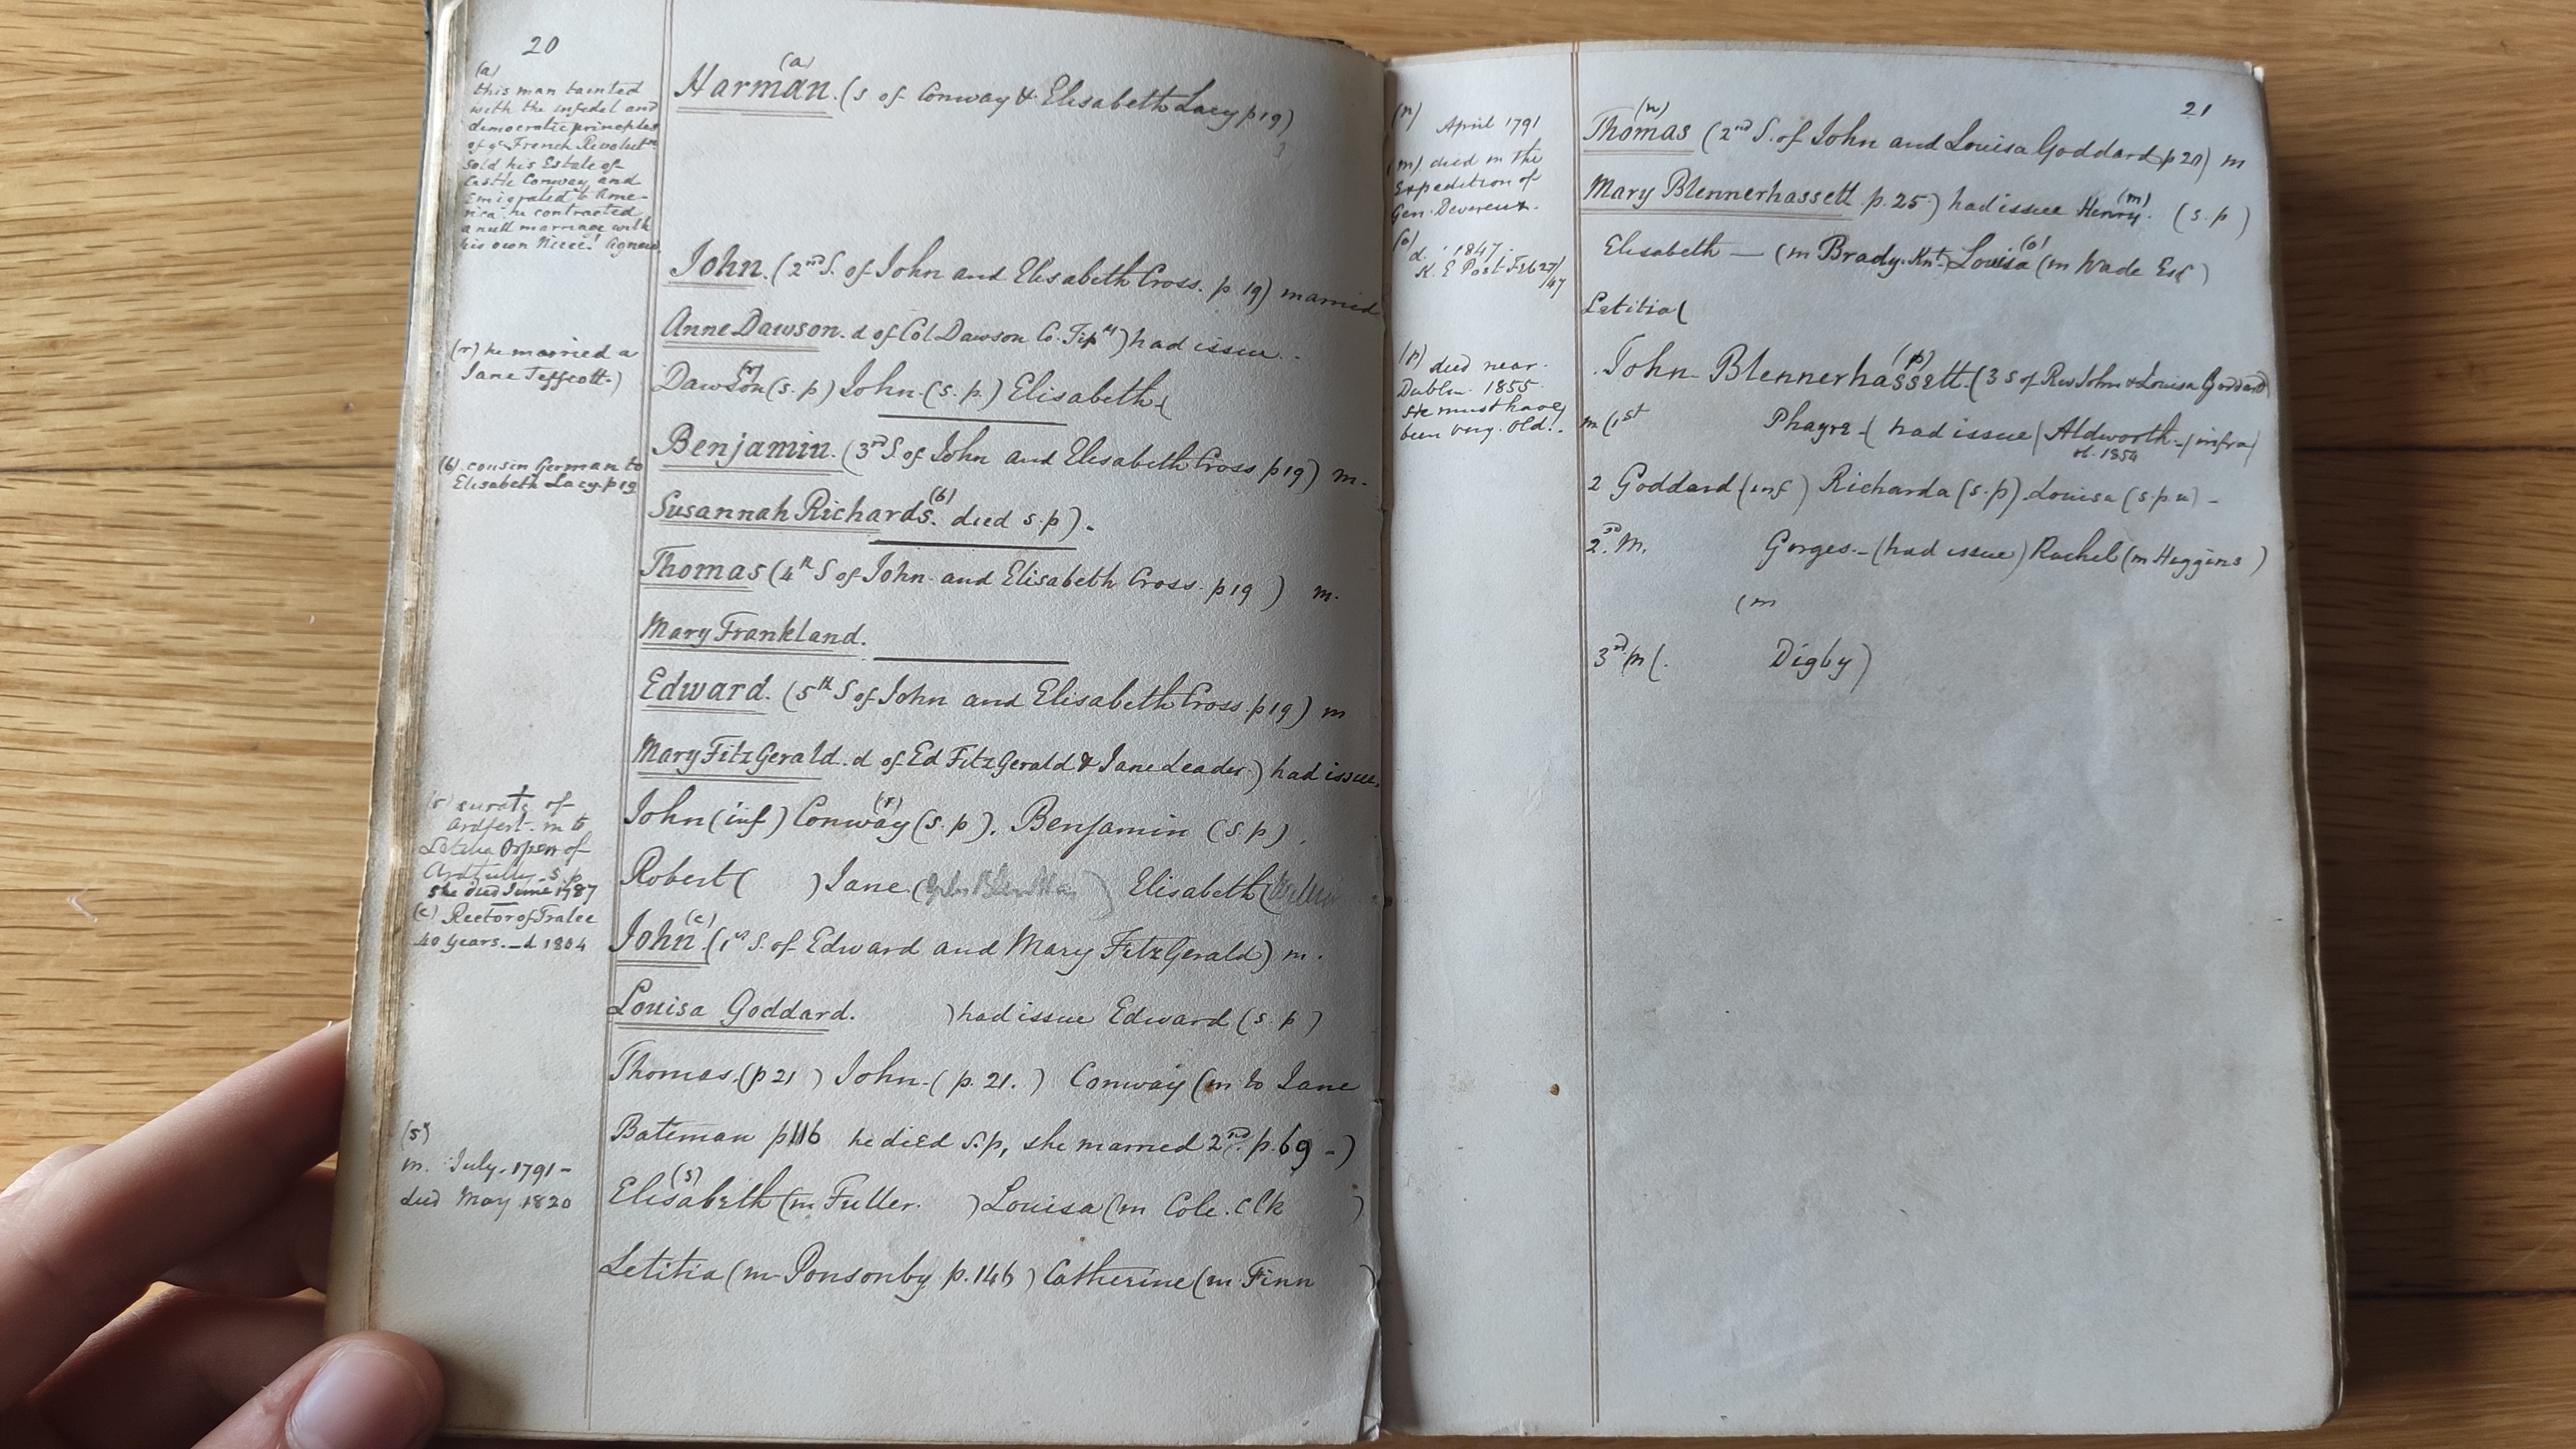 20
(a)
this man tainted
with the infedel and
democratic principles
of ye French Revolutn
sold his Estate of
Castle Conway and
Emigrated to Ame-
rica he contracted
a null marriage with
his own Niece! Agnew
(r) he married a
Jane Teffcott.)
(b) cousin German to
Elisabeth Lacy. p19
(r) curate of
Ardfert. m to
Letitia Orpen of
Ardtully s.p
she died June 1787
(c) Rector of Tralee
40 years. – d 1804
(s)
m. July. 1791 –
died May 1820
(a)
Harman. (s of Conway & Elisabeth Lacy p19)
John. (2nd S. of John and Elisabeth Cross. p 19) married
Anne Dawson. d of Col Dawson Co. Tipy) had issue..
Dawson (s.p) John. (s.p.) Elisabeth (
Benjamin. (3rd S. of John and Elisabeth Cross p19) m.
(b)
Susannah Richards. died s.p).
Thomas (4th S of John and Elisabeth Cross. p19 ) m.
Mary Frankland.
Edward. (5th S of John and Elisabeth Cross. p19) m
Mary FitzGerald. d of Ed FitzGerald & Jane Leader.) had issue.
(r)
John (inf) Conway (s.p). Benjamin (s.p).
Robert ( ) Jane ( ) Elisabeth (
(c)
John. (1st S. of Edward and Mary FitzGerald) m.
Louisa Goddard. ) had issue Edward (s.p)
Thomas. (p 21 ) John. ( p. 21. ) Conway (m to Jane
Bateman p116 he died s.p, she married 2nd. p. 69 -)
(s)
Elisabeth (m Fuller. ) Louisa (m Cole. Clk )
Letitia (m Ponsonby p. 146 ) Catherine (m Finn )
21
(n)
April 1791
(m) died in the
Expedition of
Gen. Devereux.
(o)
d. 1847.
K. E Post Feb 27/
/47
(p) died near
Dublin. 1855.
He must have
been very. old!.
(n)
Thomas (2nd S. of John and Louisa Goddard p 20) m
(m)
Mary Blennerhassett p. 25) had issue Henry. (s.p)
(o)
Elisabeth — (m Brady. Knt) Louisa (m Wade Esq)
Letitia (
(p)
John Blennerhassett. (3 S of Rev John & Louisa Goddard)
m (1st Phayre ( had issue ( Aldworth ( infra)
ob. 1854
2 Goddard (inf ) Richarda (s.p) Louisa (s.p u) -
2nd. m. Gorges. – (had issue) Rachel (m Higgins )
(m
3rd m (. Digby)